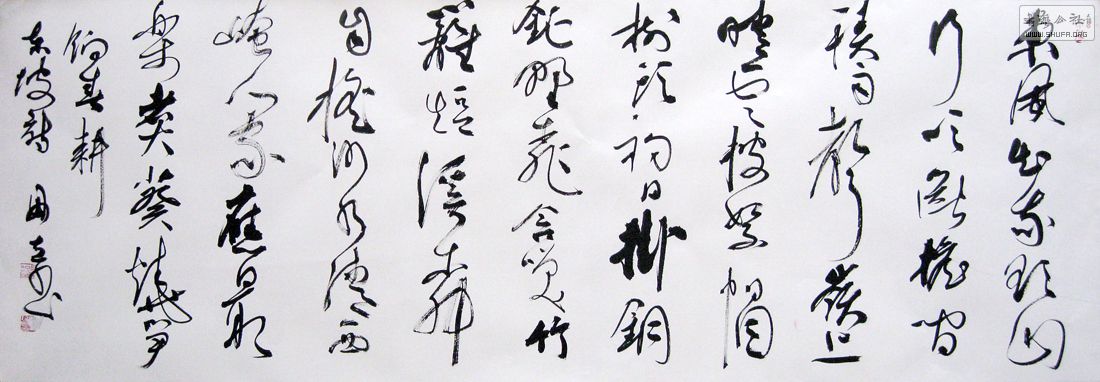 東風知我欲山
行吹斷檐間
積雨聲嶺上
晴雲披絮帽
樹頭初日掛銅
鉦野桃含笑竹
籬短溪柳
自搖沙水清西
崦人家應最
樂煮葵燒筍
餉春耕
東坡詩
WWW.SHUFA.ORG